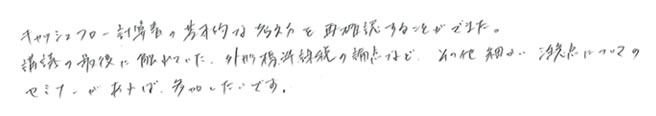 キャッシュフロー計算書の基本的な考え方を再確認することができた。
講義の最後に触れていた、外形標準課税の論点など、その他細かい論点についての
セミナーがあれば、参加したいです。